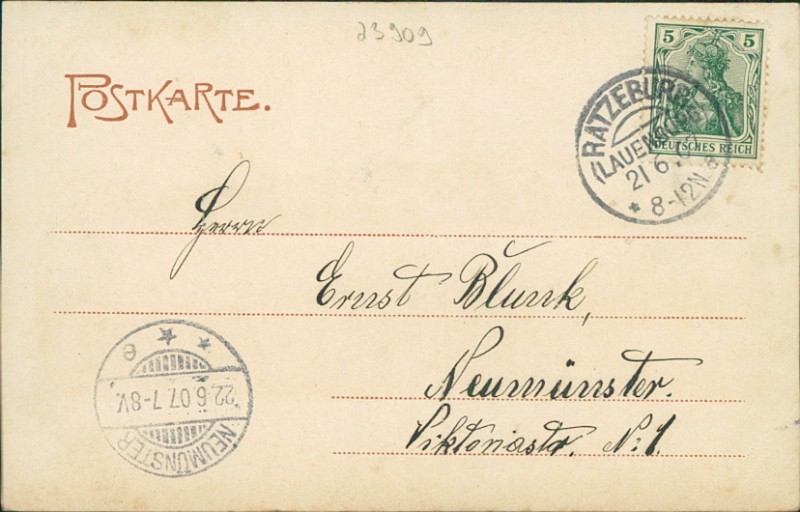 23909
POSTKARTE.
5 5
DEUTSCHES REICH
RATZEBURG
(LAUENBURG)
21 6.07
* 8-12N. a
Herrn
Ernst Blunk,
Neumünster.
Viktoriastr. No: 1.
* * e
22.6.07.7-8V.
NEUMÜNSTER